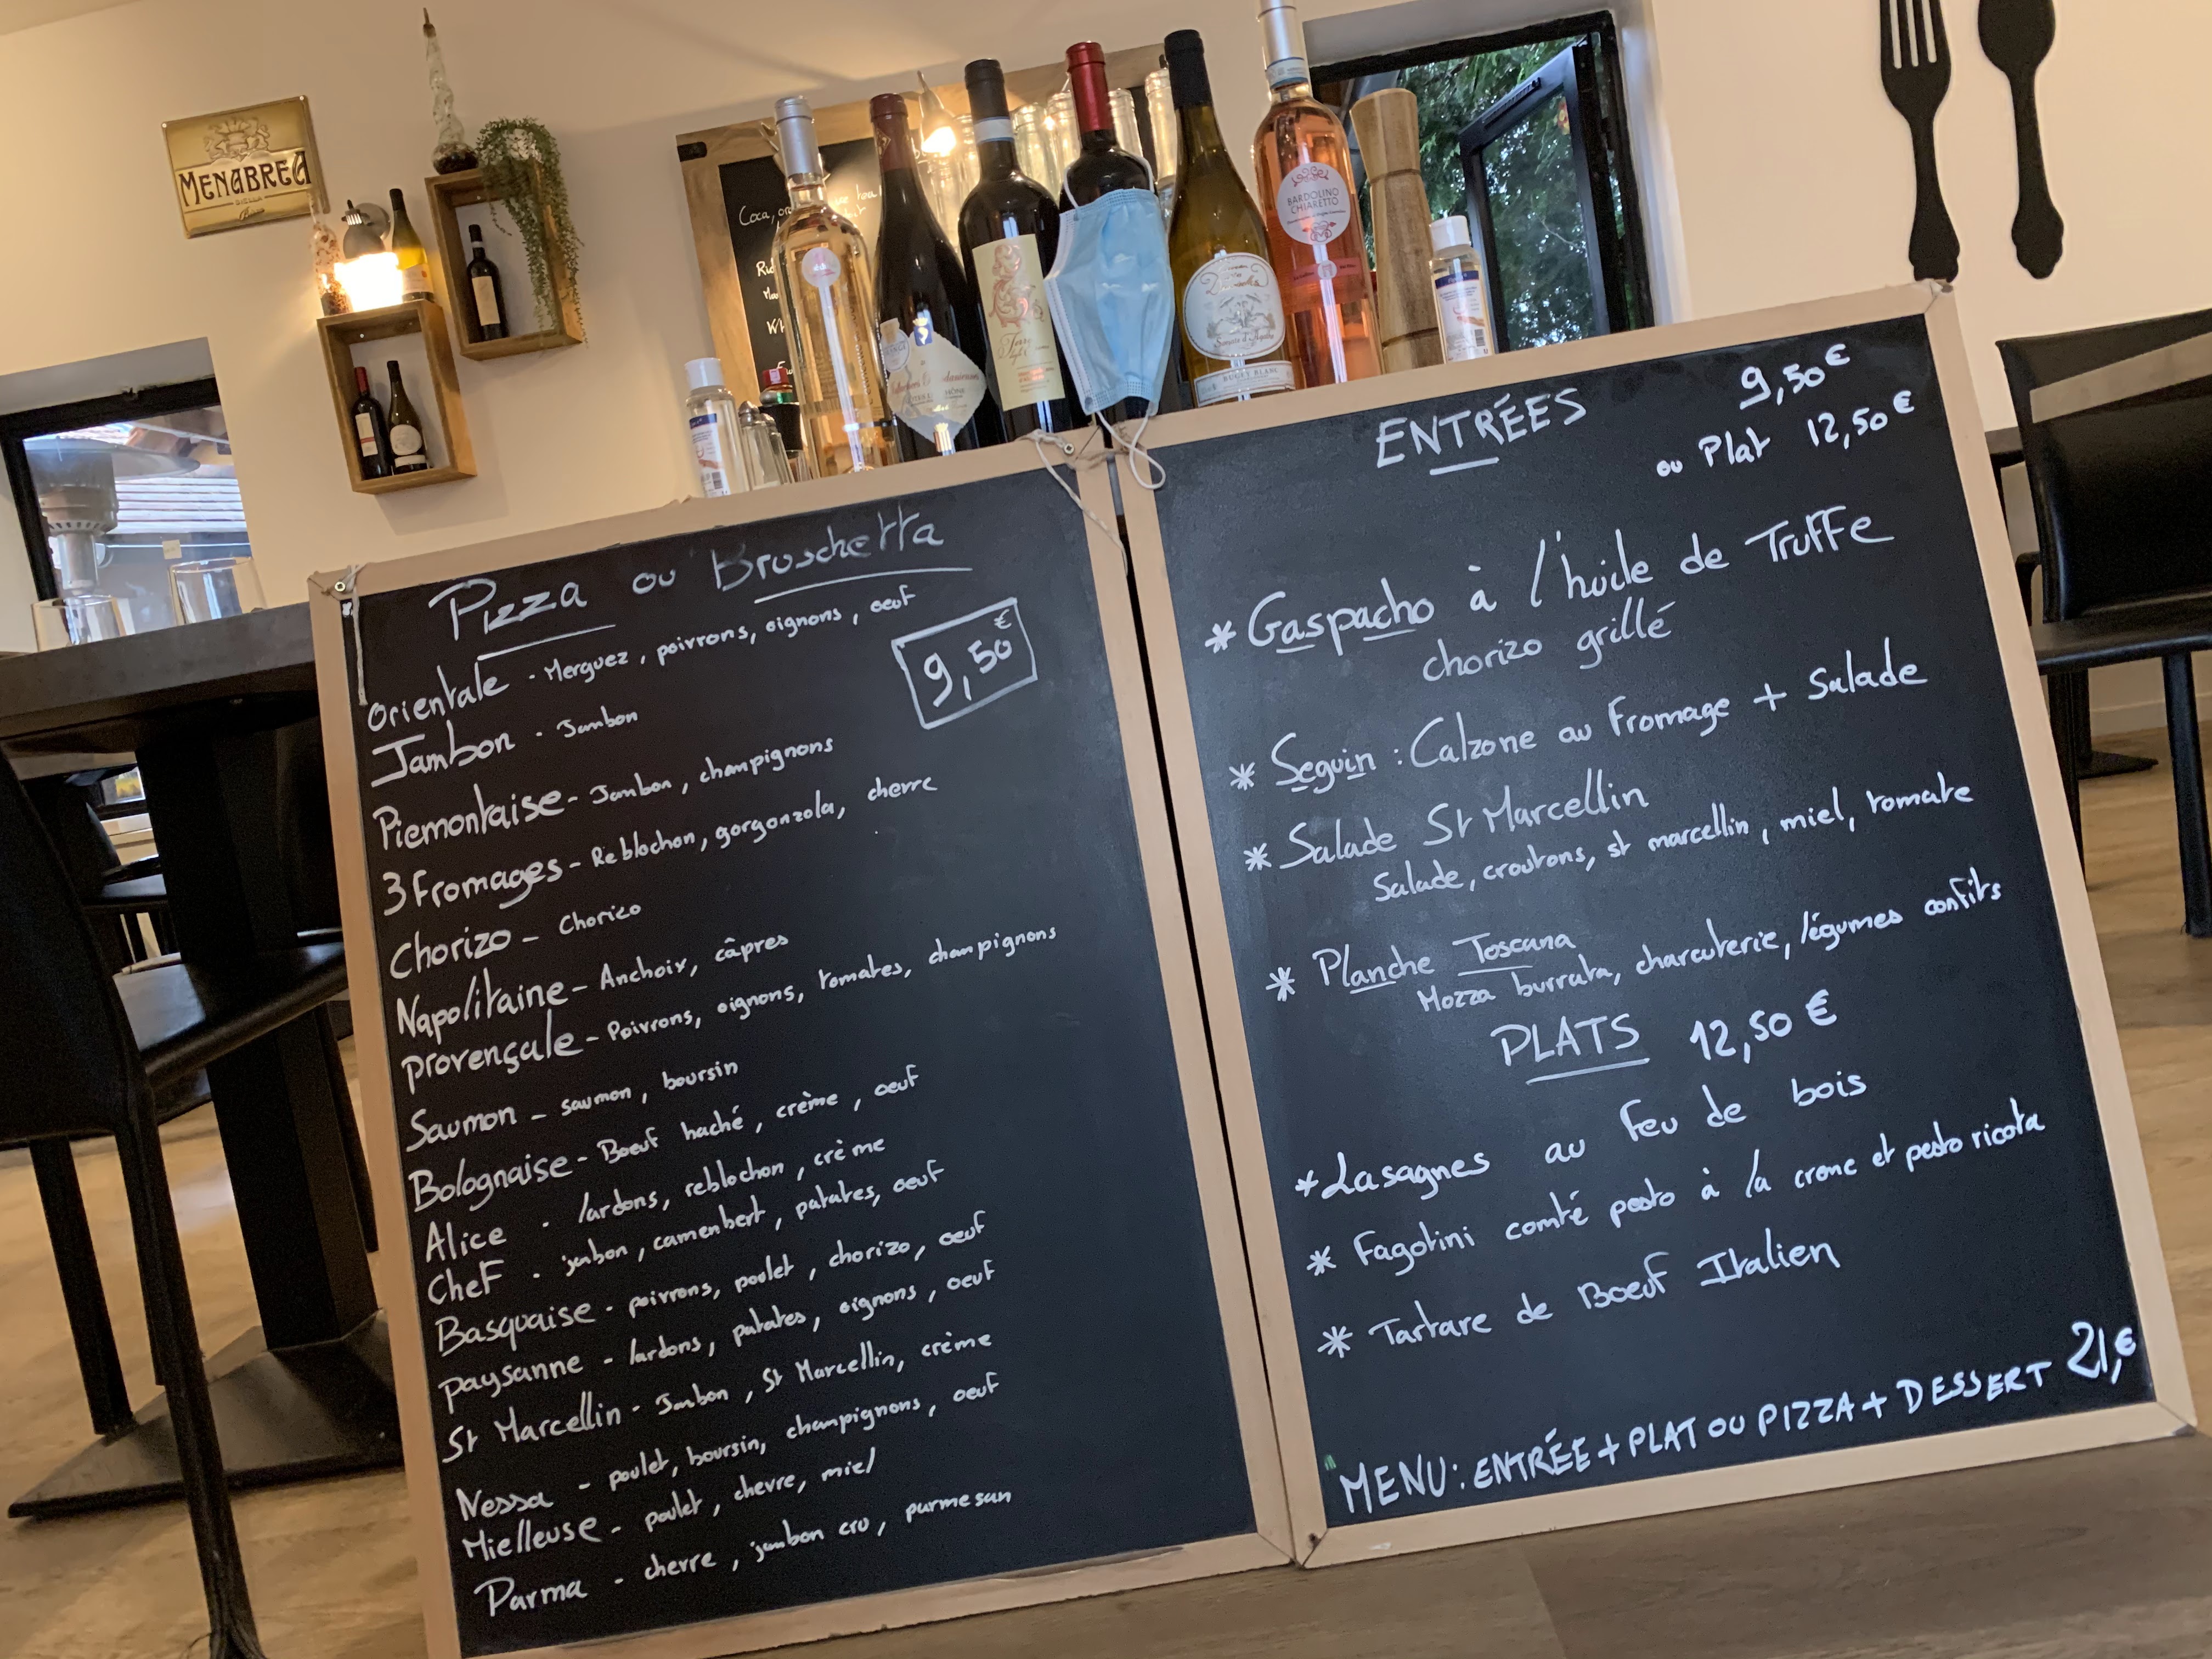 MENABREA
BIELLA
BARDOLINO
CHIARETTO
BUGEY BLANC
Pizza ou Bruschetta
9,50€
Orientale - Merguez, poivrons, oignons, oeuf
Jambon - Jambon
Piemontaise - Jambon, champignons
3 Fromages - Reblochon, gorgonzola, chevre
Chorizo - Chorizo
Napolitaine - Anchoix, câpres
Provençale - Poivrons, oignons, tomates, champignons
Saumon - saumon, boursin
Bolognaise - Boeuf haché, crème, oeuf
Alice - lardons, reblochon, crème
Chef - jambon, camenbert, patates, oeuf
Basquaise - poivrons, poulet, chorizo, oeuf
Paysanne - lardons, patates, oignons, oeuf
St Marcellin - Jambon, St Marcellin, crème
Nessa - poulet, boursin, champignons, oeuf
Mielleuse - poulet, chevre, miel
Parma - chevre, jambon cru, parmesan
ENTRÉES 9,50€
ou Plat 12,50€
* Gaspacho à l'huile de Truffe
chorizo grillé
* Seguin : Calzone au fromage + Salade
* Salade St Marcellin
Salade, croutons, st marcellin, miel, tomate
* Planche Toscana
Mozza burrata, charcuterie, légumes confits
PLATS 12,50€
* Lasagnes au feu de bois
* Fagotini comté pesto à la creme et pesto ricota
* Tartare de Boeuf Italien
MENU: ENTRÉE + PLAT OU PIZZA + DESSERT 21,€